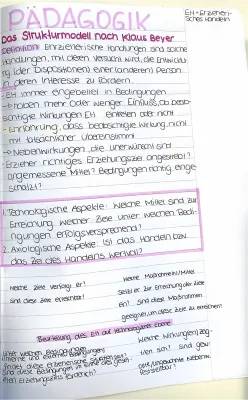 PÄDAGOGIK
EH = Erzieheri-
sches Handeln
Das Strukturmodell nach Klaus Beyer
Definition: Erzieherische Handlungen sind solche
Handlungen, mit denen versucht wird, die Entwicklu-
ng (der Dispositionen) einer (anderen) Person
in deren Interesse zu fördern.
- EH immer eingebettet in Bedingungen
→ haben mehr oder weniger Einfluss, ob beab-
sichtigte Wirkungen EH eintreten oder nicht
- Erfahrung, dass beabsichtigte Wirkung nicht
mit tatsächlicher übereinstimmt
→ Nebenwirkungen, die unerwünscht sind
- Erzieher richtiges Erziehungsziel angestrebt?
angemessene Mittel? Bedingungen richtig einge-
schätzt?
1. Technologische Aspekte: Welche Mittel sind zur
Erreichung welcher Ziele unter welchen Bedi-
ngungen erfolgversprechend?
2. Axiologische Aspekte: Ist das Handeln bzw.
das Ziel des Handelns wertvoll?
Welche Ziele verfolgt er?
Welche Maßnahmen/Mittel
Sind diese Ziele erreichbar?
setzt er zur Erreichung der Ziele
ein? Sind diese Maßnahmen
geeignet, um diese Ziele zu erreichen?
Beurteilung des EH auf technologischer Ebene
Unter welchen Bedingungen
(interne und externe Bedingungen)
findet diese erzieherische
Sind diese Bedingungen
Erziehungsziels förderlich?
Welche Wirkung(en) zeig-
ten sich? Sind
Nebenw.
feststellbar?